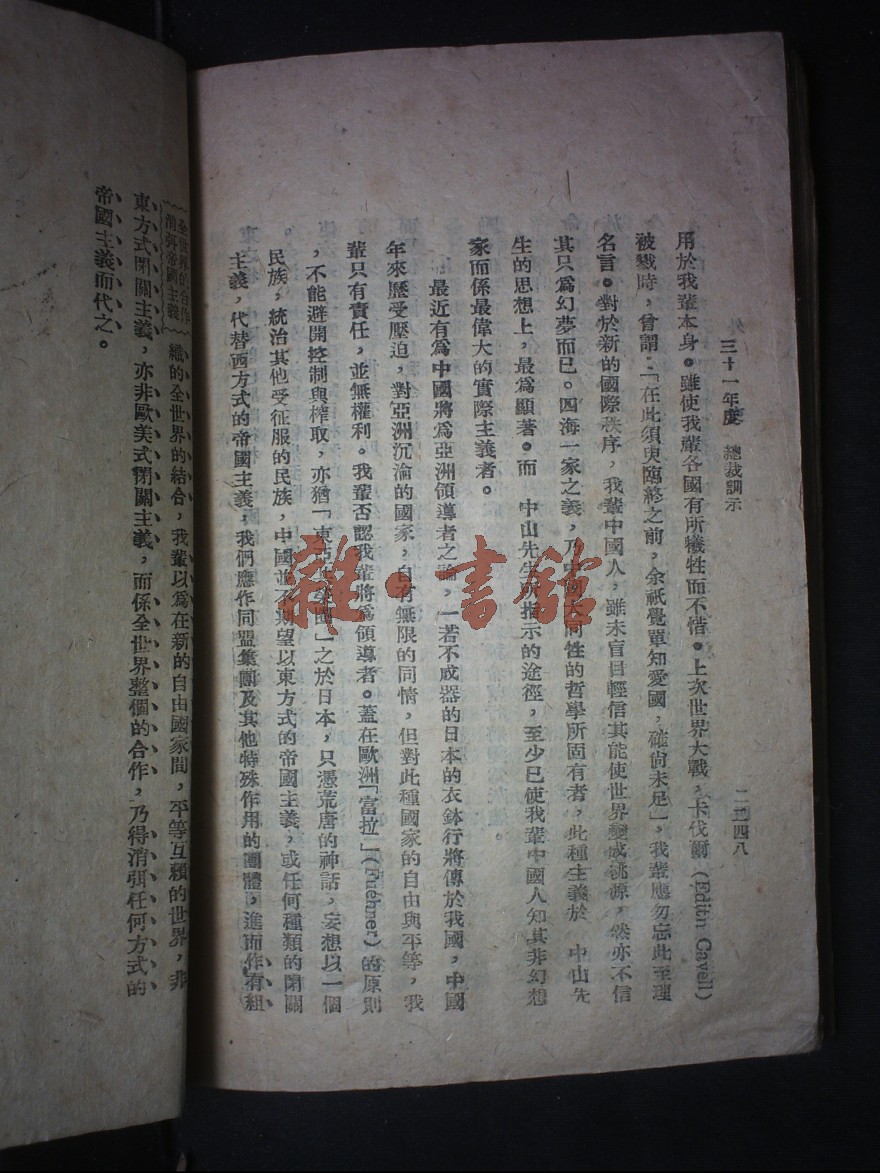 三十一年度 總裁訓示
二二四八
用於我輩本身。雖使我輩各國有所犧牲而不惜。上次世界大戰,卡伐爾(Edith Cavell)
被戮時,曾謂:「在此須臾臨終之前,余祇覺單知愛國,確尙未足」,我輩應勿忘此至理
名言。對於新的國際秩序,我輩中國人,雖未盲目輕信其能使世界變成桃源,然亦不信
其只爲幻夢而已。四海一家之義,乃中國大同性的哲學所固有者,此種主義於 中山先
生的思想上,最爲顯著。而 中山先生所指示的途徑,至少已使我輩中國人知其非幻想
家而係最偉大的實際主義者。
最近有爲中國將爲亞洲領導者之論,一若不成器的日本的衣鉢行將傳於我國,中國
年來歷受壓迫,對亞洲沉淪的國家,自有無限的同情,但對此種國家的自由與平等,我
輩只有責任,並無權利。我輩否認我輩將爲領導者。蓋在歐洲「富拉」(Fuehner)的原則
,不能避開控制與榨取,亦猶「東亞共榮圈」之於日本,只憑荒唐的神話,妄想以一個
民族,統治其他受征服的民族,中國並不期望以東方式的帝國主義,或任何種類的閉關
主義,代替西方式的帝國主義,我們應作同盟集團及其他特殊作用的團體,進而作有組
全世界的合作
消弭帝國主義
織的全世界的結合,我輩以爲在新的自由國家間,平等互賴的世界,非
東方式閉關主義,亦非歐美式閉關主義,而係全世界整個的合作,乃得消弭任何方式的
帝國主義而代之。
雜·書館